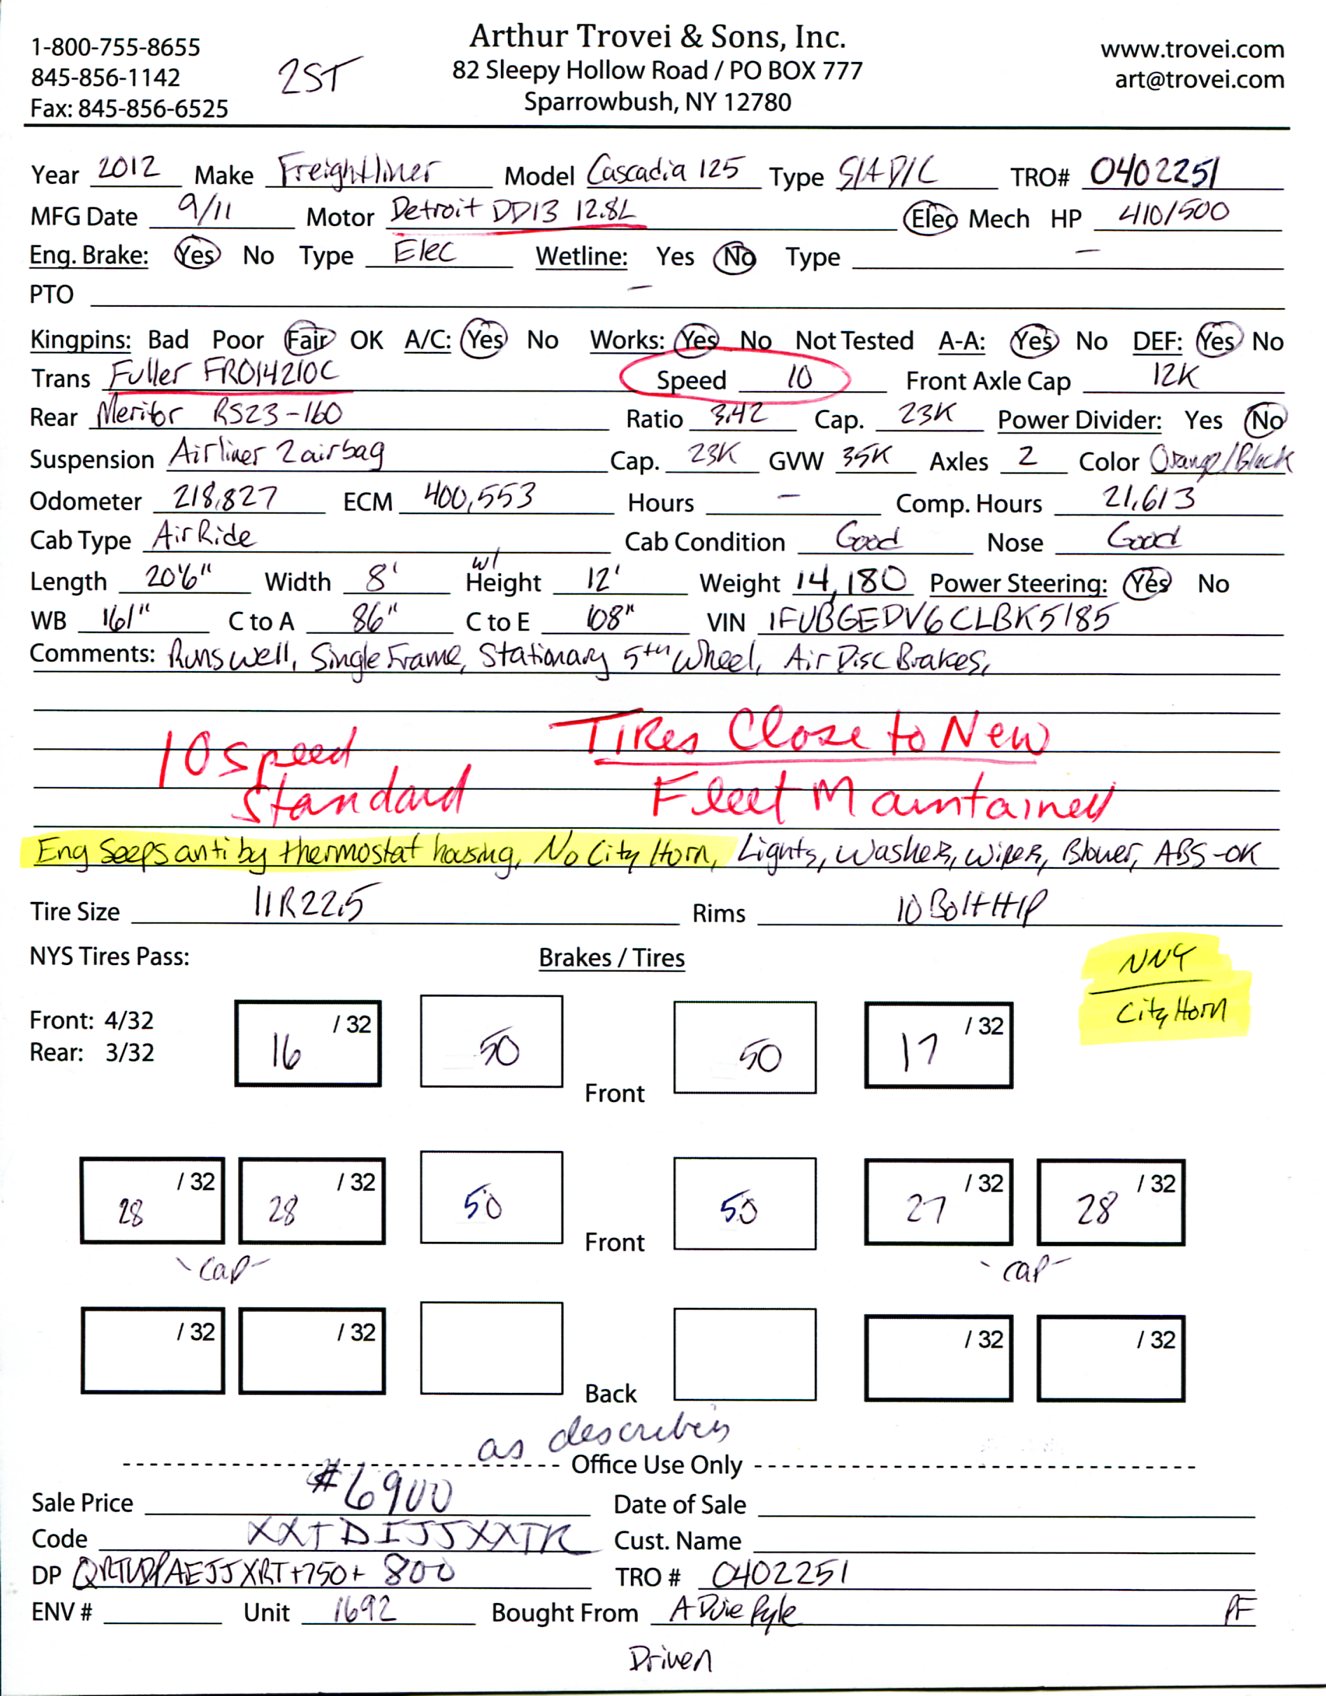 1-800-755-8655
845-856-1142
Fax: 845-856-6525
2ST
Arthur Trovei & Sons, Inc.
82 Sleepy Hollow Road / PO BOX 777
Sparrowbush, NY 12780
www.trovei.com
art@trovei.com
Year 2012 Make Freightliner Model Cascadia 125 Type S/A D/C TRO# 0402251
MFG Date 9/11 Motor Detroit DD13 12.8L Elec Mech HP 410/500
Eng. Brake: Yes No Type Elec Wetline: Yes No Type —
PTO —
Kingpins: Bad Poor Fair OK A/C: Yes No Works: Yes No Not Tested A-A: Yes No DEF: Yes No
Trans Fuller FRO14210C Speed 10 Front Axle Cap 12K
Rear Meritor RS23-160 Ratio 3.42 Cap. 23K Power Divider: Yes No
Suspension Airliner 2 airbag Cap. 23K GVW 35K Axles 2 Color Orange/Black
Odometer 218,827 ECM 400,553 Hours — Comp. Hours 21,613
Cab Type Air Ride Cab Condition Good Nose Good
Length 20'6" Width 8' w/ Height 12' Weight 14,180 Power Steering: Yes No
WB 161" C to A 86" C to E 108" VIN 1FUBGEDV6CLBK5185
Comments: Runs well, Single Frame, Stationary 5th Wheel, Air Disc Brakes,
10 Speed Standard
Tires Close to New
Fleet Maintained
Eng Seeps anti by thermostat housing, No City Horn, Lights, Washer, Wipers, Blower, ABS-OK
Tire Size 11R22.5 Rims 10 Bolt HP
NYS Tires Pass: Brakes / Tires
NNY
City Horn
Front: 4/32
Rear: 3/32
16 /32 50 Front 50 17 /32
28 /32 28 /32 50 Front 50 27 /32 28 /32
-cap- -cap-
/32 /32 Back /32 /32
as described
Office Use Only
Sale Price #6900 Date of Sale
Code XXTDIJJXXTR Cust. Name
DP +750+ 800 TRO # 0402251
ENV # Unit 1692 Bought From A Duie Pyle PF
Driven